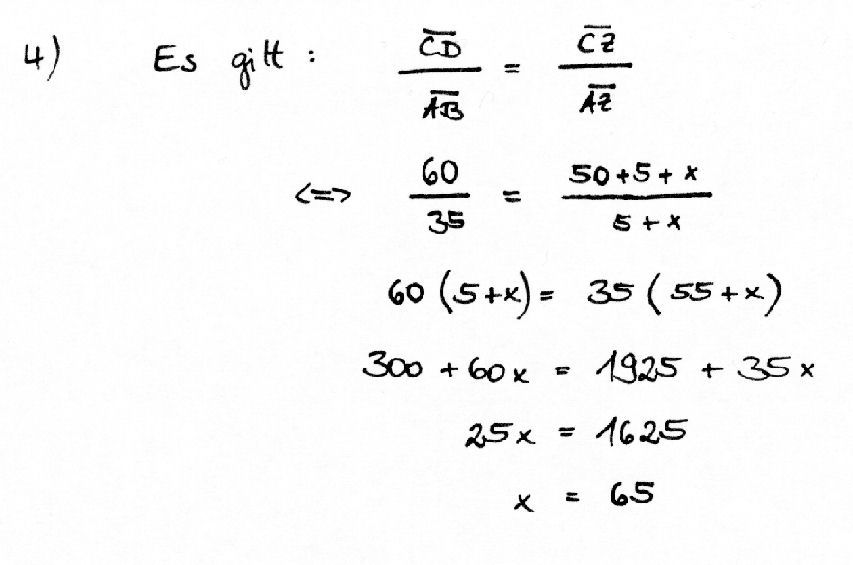 4) Es gilt : C̅D̅ / A̅B̅ = C̅Z̅ / A̅Z̅
<=> 60 / 35 = 50+5+x / 5+x
60 (5+x) = 35 (55+x)
300 + 60x = 1925 + 35x
25x = 1625
x = 65